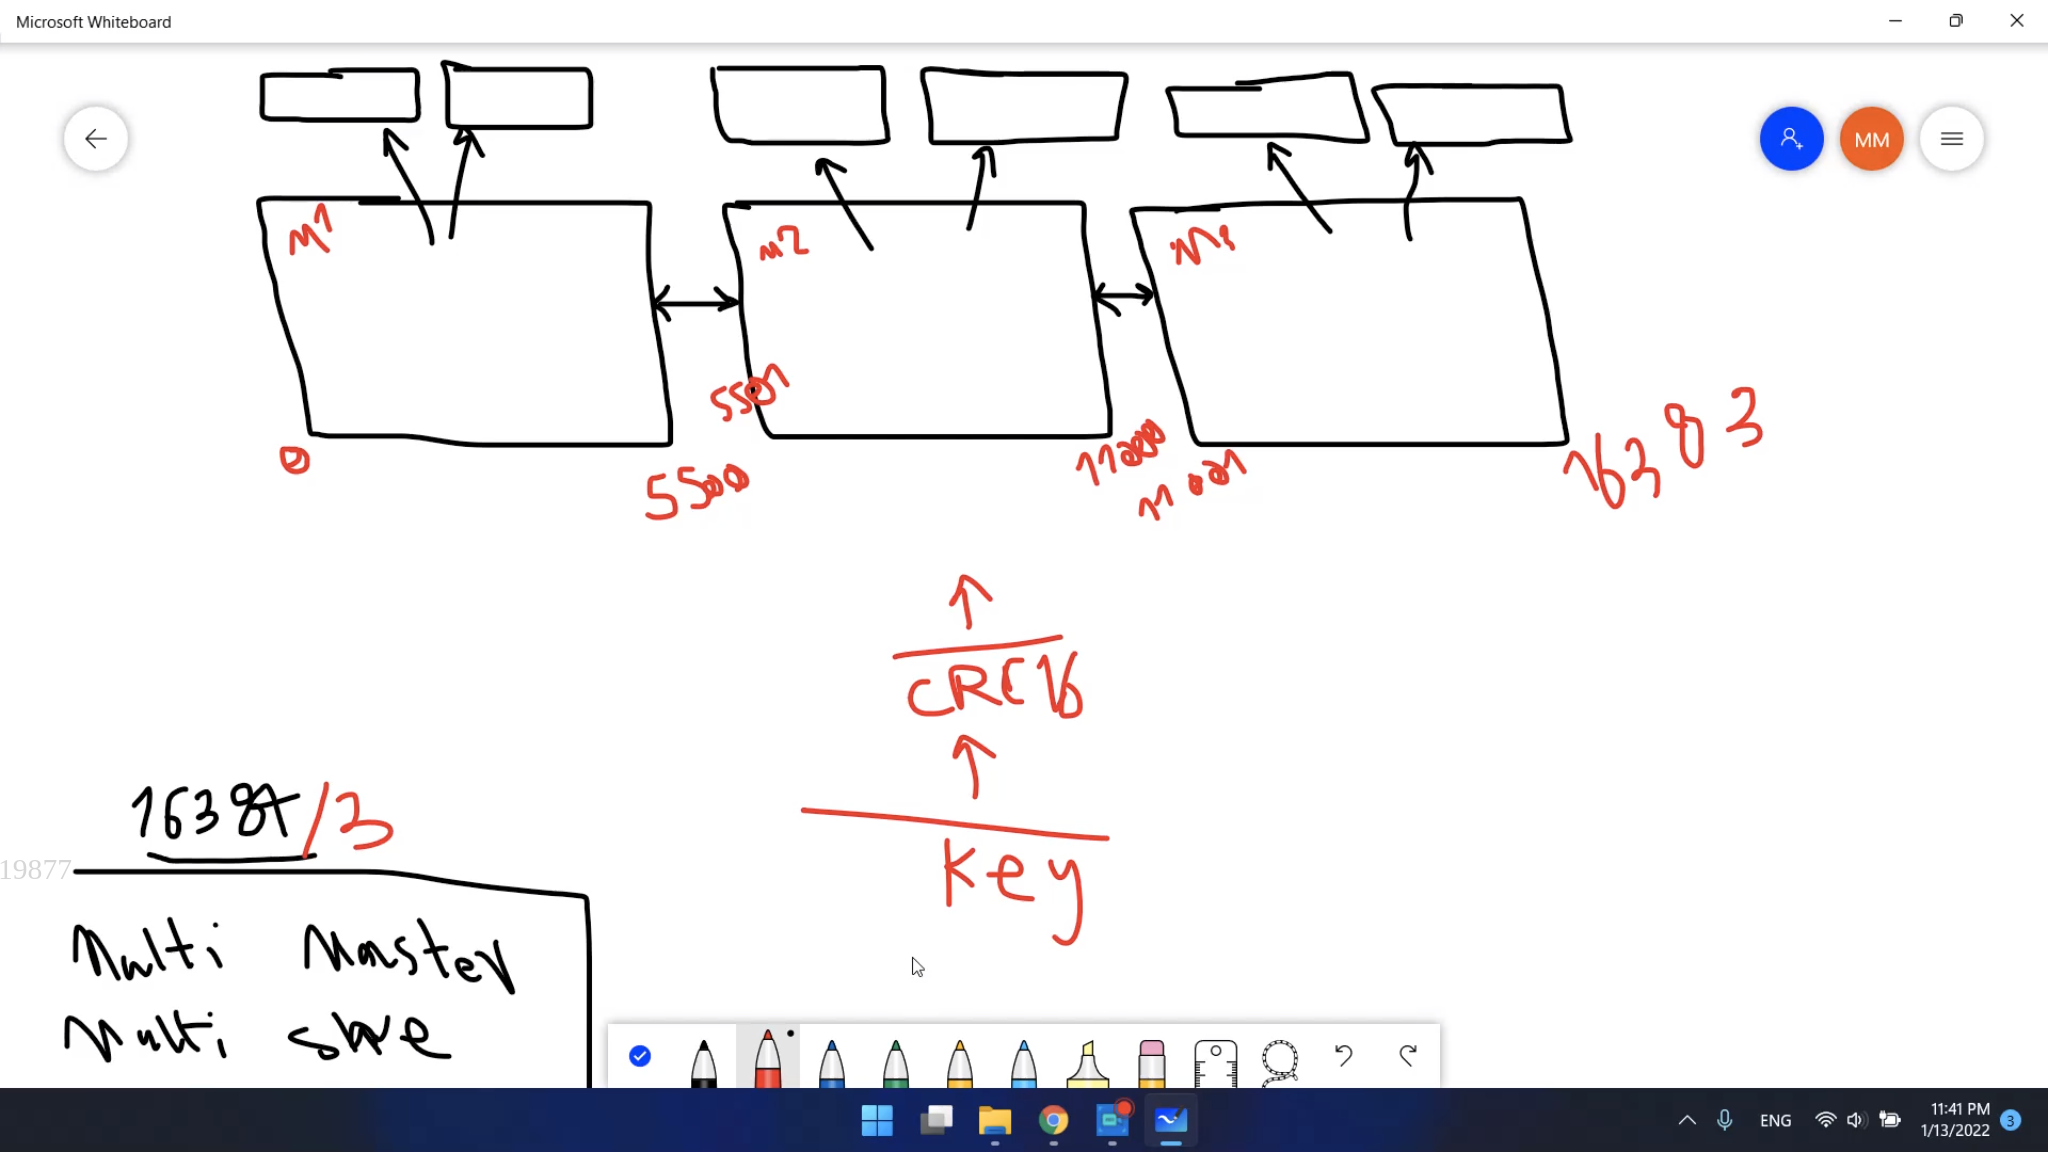 Microsoft Whiteboard
MM
M1
m2
M3
5501
0
5500
11000
11001
16383
CRC16
16384/3
19877
Key
Multi Master
Multi slave
ENG
11:41 PM
1/13/2022
3